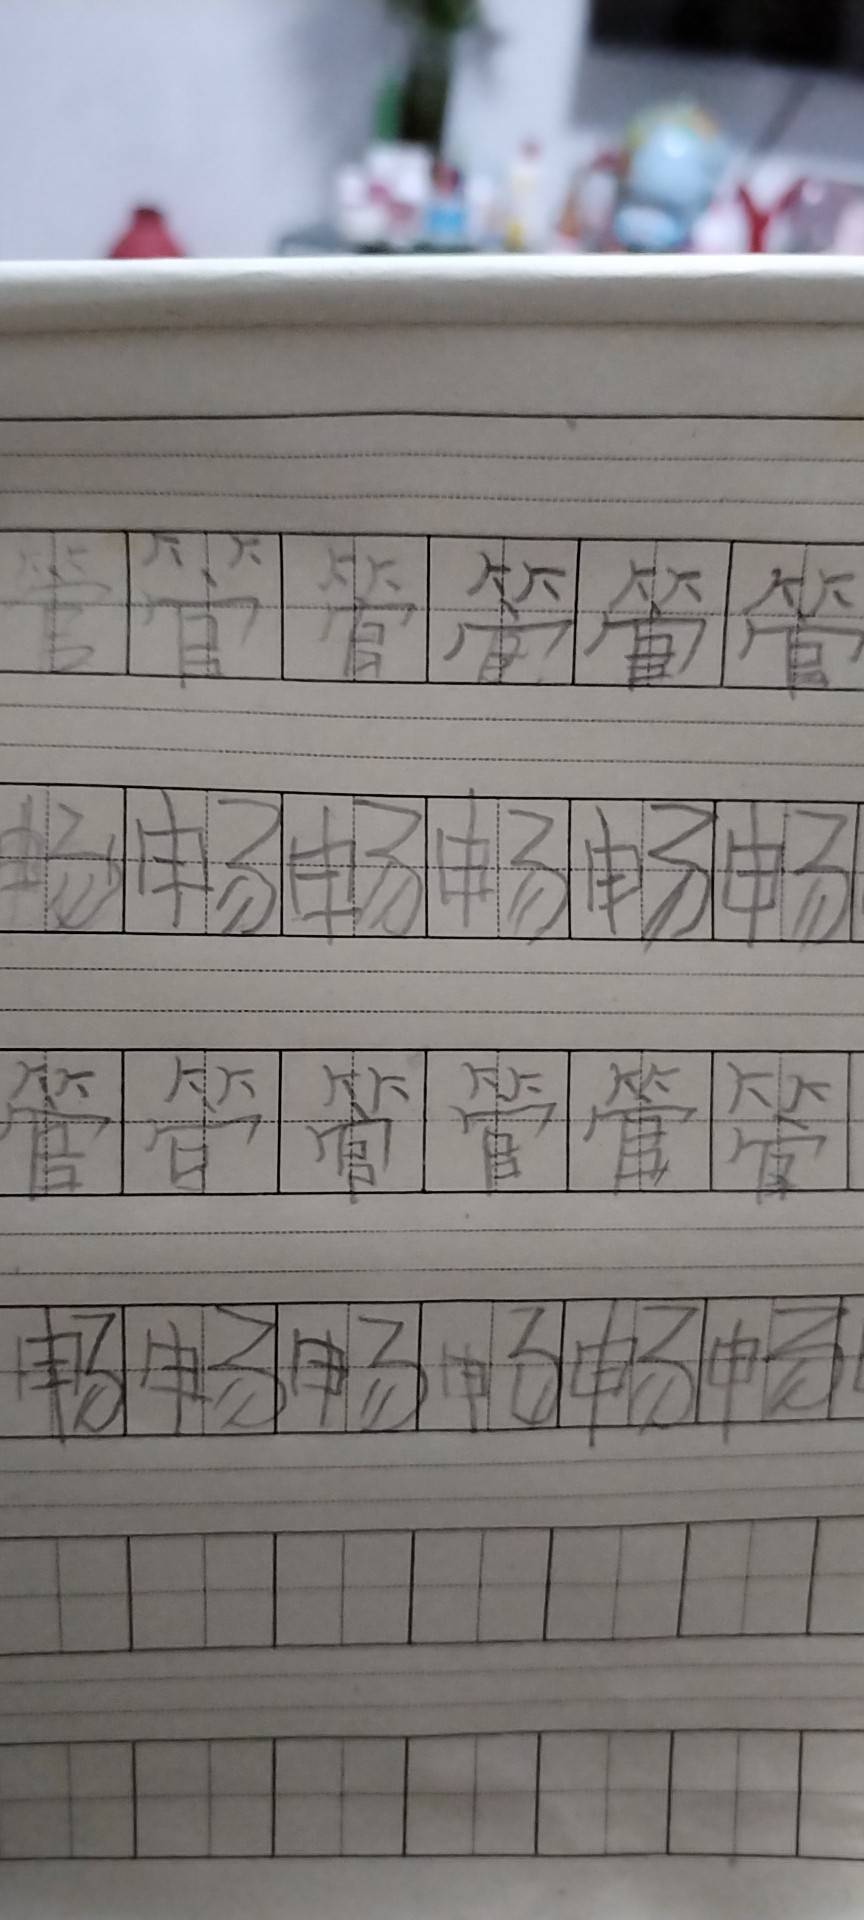 管管管管管管
畅畅畅畅畅畅
管管管管管管
畅畅畅畅畅畅